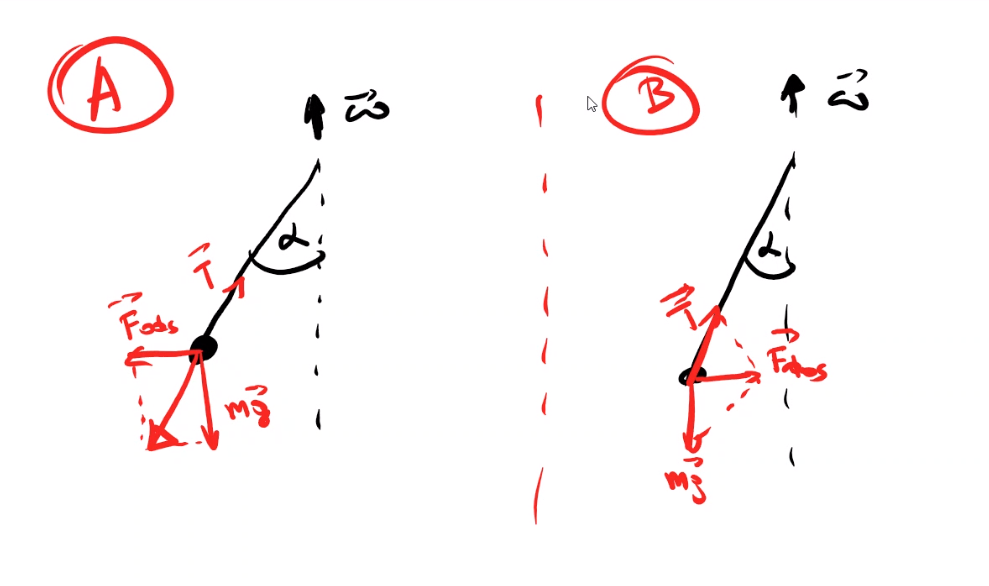 A
ω⃗
α
T⃗
F⃗ods
mg⃗
B
ω⃗
α
T⃗
mg⃗